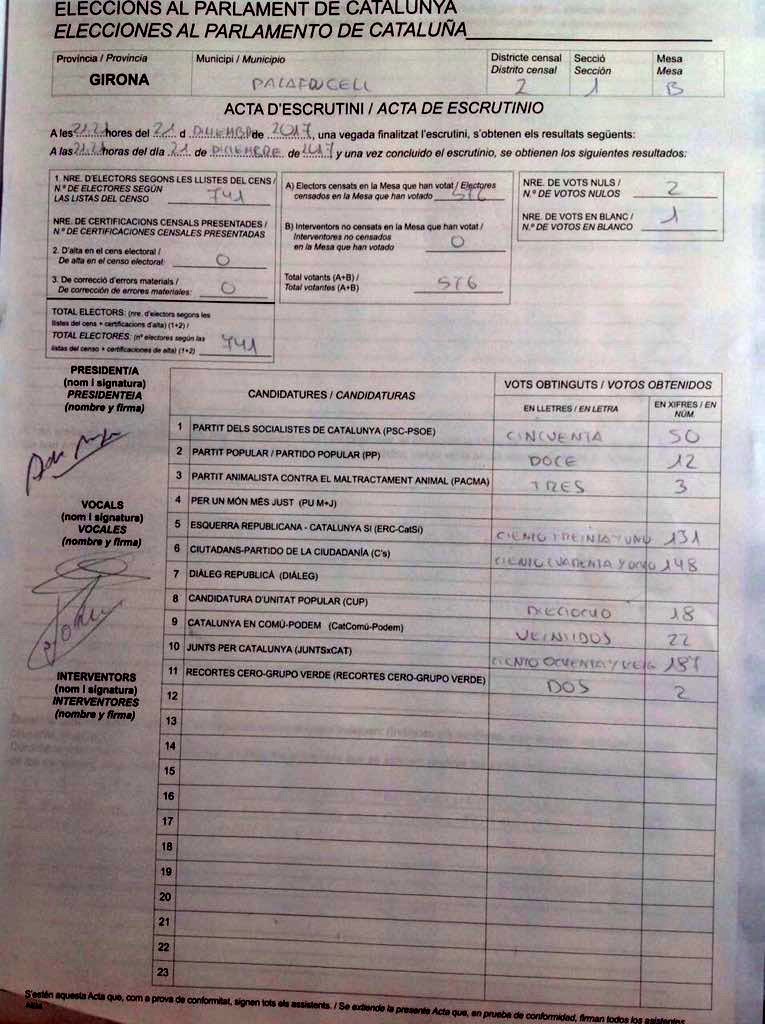 ELECCIONS AL PARLAMENT DE CATALUNYA
ELECCIONES AL PARLAMENTO DE CATALUÑA
Província / Provincia
GIRONA
Municipi / Municipio
PALAFRUGELL
Districte censal
Distrito censal
2
Secció
Sección
1
Mesa
Mesa
B
ACTA D'ESCRUTINI / ACTA DE ESCRUTINIO
A les 21.21 hores del 21 d DICIEMBRE de 2017, una vegada finalitzat l'escrutini, s'obtenen els resultats següents:
A las 21.21 horas del día 21 de DICIEMBRE de 2017 y una vez concluido el escrutinio, se obtienen los siguientes resultados:
1. NRE. D'ELECTORS SEGONS LES LLISTES DEL CENS /
N.º DE ELECTORES SEGÚN
LAS LISTAS DEL CENSO 741
NRE. DE CERTIFICACIONS CENSALS PRESENTADES /
N.º DE CERTIFICACIONES CENSALES PRESENTADAS
2. D'alta en el cens electoral /
De alta en el censo electoral: 0
3. De correcció d'errors materials /
De corrección de errores materiales: 0
TOTAL ELECTORS: (nre. d'electors segons les
llistes del cens + certificacions d'alta) (1+2) /
TOTAL ELECTORES: (nº electores según las
listas del censo + certificaciones de alta) (1+2) 741
A) Electors censats en la Mesa que han votat / Electores
censados en la Mesa que han votado 576
B) Interventors no censats en la Mesa que han votat /
Interventores no censados
en la Mesa que han votado 0
Total votants (A+B) /
Total votantes (A+B) 576
NRE. DE VOTS NULS /
N.º DE VOTOS NULOS 2
NRE. DE VOTS EN BLANC /
N.º DE VOTOS EN BLANCO 1
PRESIDENT/A
(nom i signatura)
PRESIDENTE/A
(nombre y firma)
VOCALS
(nom i signatura)
VOCALES
(nombre y firma)
INTERVENTORS
(nom i signatura)
INTERVENTORES
(nombre y firma)
CANDIDATURES / CANDIDATURAS
VOTS OBTINGUTS / VOTOS OBTENIDOS
EN LLETRES / EN LETRA
EN XIFRES / EN NÚM.
1 PARTIT DELS SOCIALISTES DE CATALUNYA (PSC-PSOE) CINCUENTA 50
2 PARTIT POPULAR / PARTIDO POPULAR (PP) DOCE 12
3 PARTIT ANIMALISTA CONTRA EL MALTRACTAMENT ANIMAL (PACMA) TRES 3
4 PER UN MÓN MÉS JUST (PU M+J)
5 ESQUERRA REPUBLICANA - CATALUNYA SI (ERC-CatSí) CIENTO TREINTA Y UNO 131
6 CIUTADANS-PARTIDO DE LA CIUDADANÍA (C's) CIENTO CUARENTA Y OCHO 148
7 DIÀLEG REPUBLICÀ (DIÀLEG)
8 CANDIDATURA D'UNITAT POPULAR (CUP) DIECIOCHO 18
9 CATALUNYA EN COMÚ-PODEM (CatComú-Podem) VEINTIDOS 22
10 JUNTS PER CATALUNYA (JUNTSxCAT) CIENTO OCHENTA Y 187
11 RECORTES CERO-GRUPO VERDE (RECORTES CERO-GRUPO VERDE) DOS 2
12
13
14
15
16
17
18
19
20
21
22
23
S'estén aquesta Acta que, com a prova de conformitat, signen tots els assistents. / Se extiende la presente Acta que, en prueba de conformidad, firman todos los asistentes